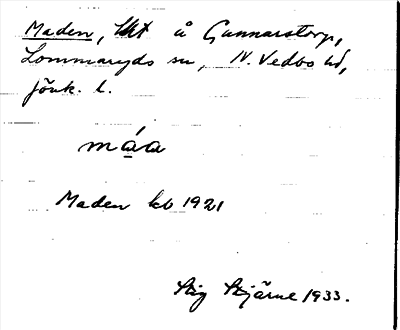 Maden, å Gunnarstorp,
Lommaryds sn, N. Vedbo hd,
Jönk. l.
måa
Maden kb 1921
Stig Stjärne 1933.